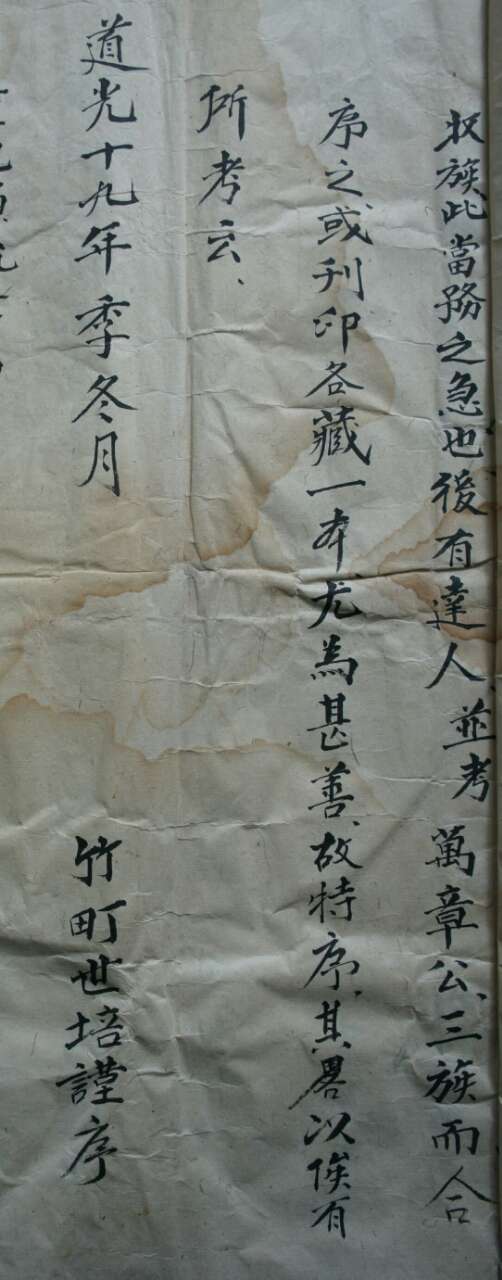 收族此當務之急也後有達人並考萬章公、三族而合
序之、或刊印各藏一本、尤為甚善、故特序、其畧以俟有
所考云、
道光十九年季冬月
竹町世培謹序